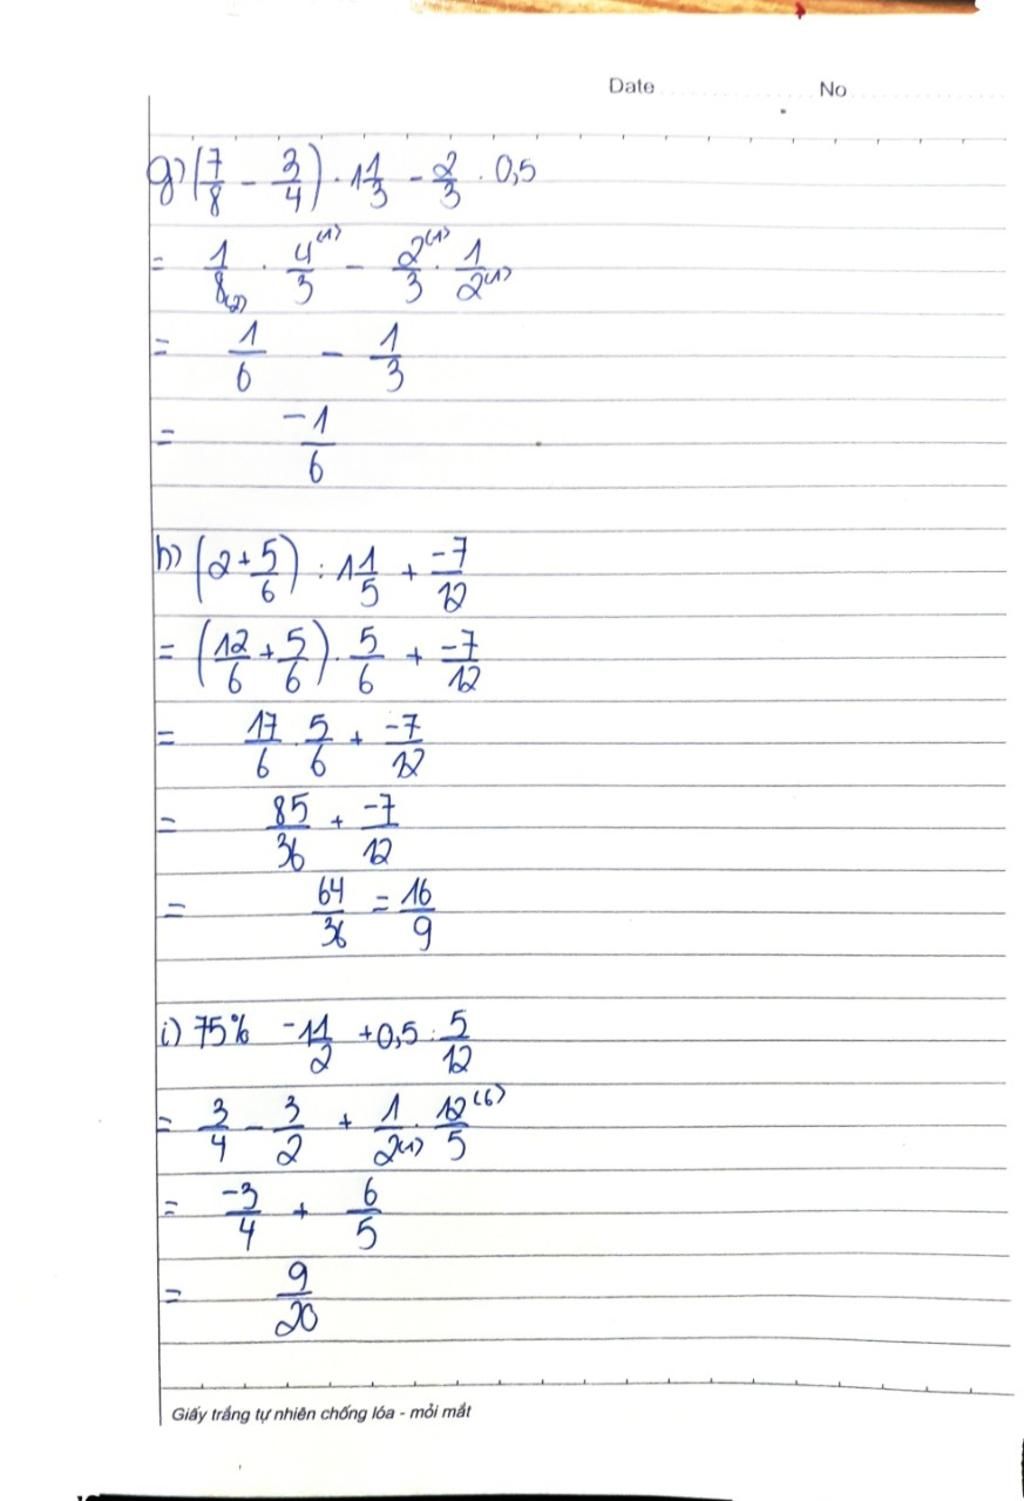 Date No
g) (7/8 - 3/4) · 1 1/3 - 2/3 · 0,5
= 1/8(2) · 4(1)/3 - 2(1)/3 · 1/2(1)
= 1/6 - 1/3
= -1/6
h) (2 + 5/6) : 1 1/5 + -7/12
= (12/6 + 5/6) · 5/6 + -7/12
= 17/6 · 5/6 + -7/12
= 85/36 + -7/12
= 64/36 = 16/9
i) 75% - 1 1/2 + 0,5 : 5/12
= 3/4 - 3/2 + 1/2(1) · 12(6)/5
= -3/4 + 6/5
= 9/20
Giấy trắng tự nhiên chống lóa - mỏi mắt